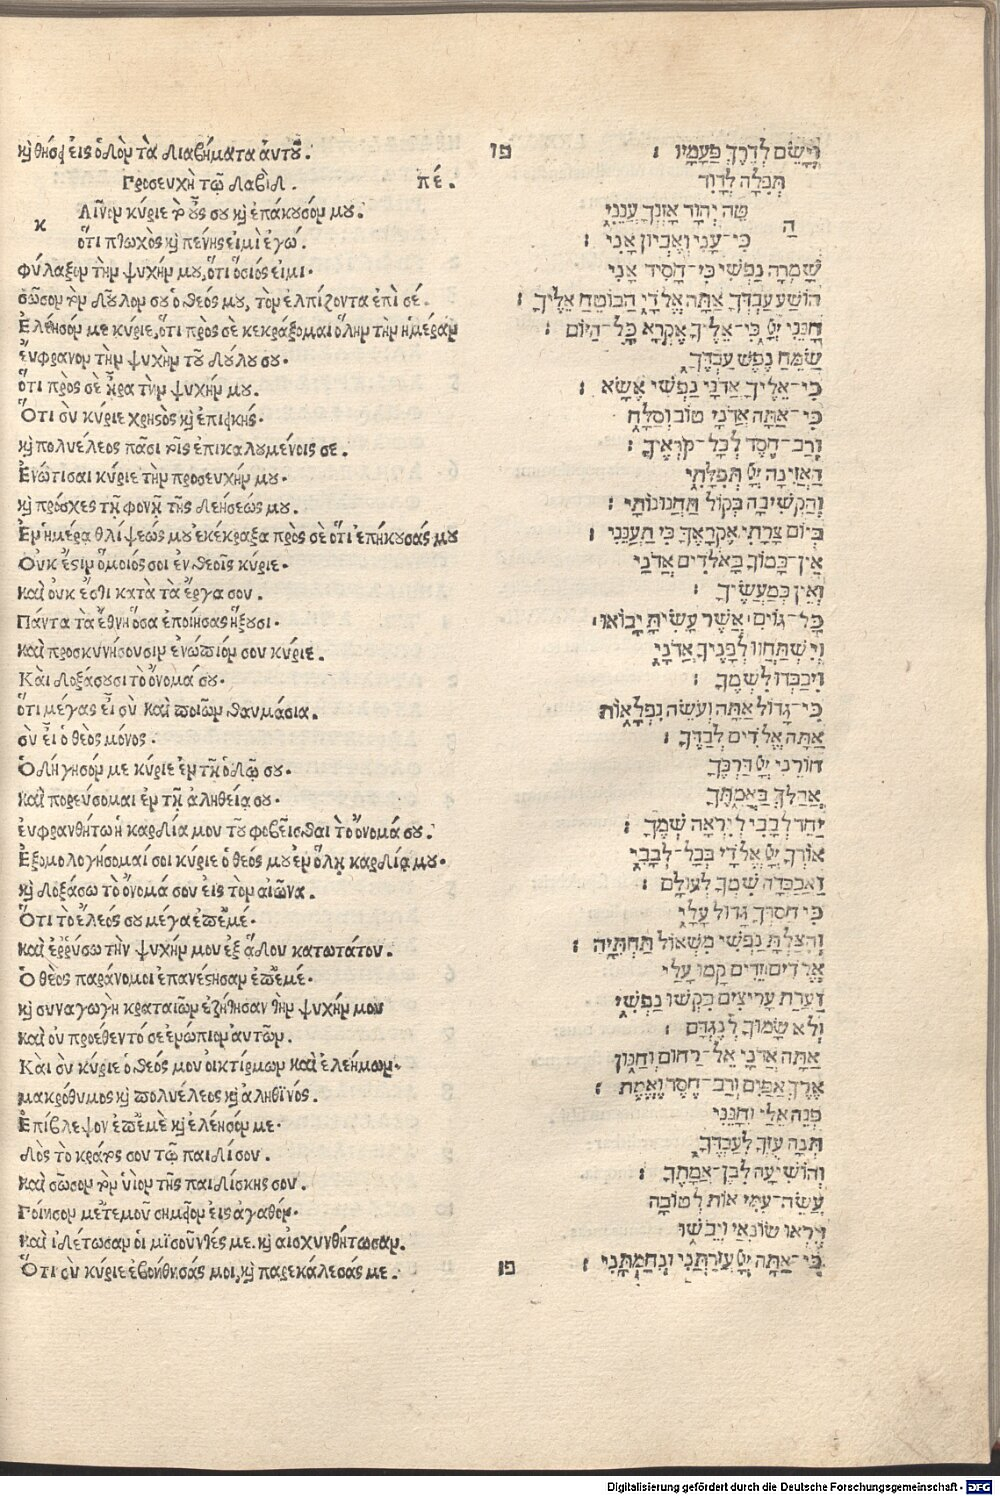 καὶ θήσει εἰς ὁδὸν τὰ διαβήματα ἀυτοῦ.
Προσευχὴ τῷ Δαβίδ. πέ.
κ
Λῖνον κύριε τὸ οὖς σου καὶ ἐπάκουσόν μου.
ὅτι πτωχὸς καὶ πένης εἰμὶ ἐγώ.
φύλαξον τὴν ψυχήν μου, ὅτι ὅσιός εἰμι.
σῶσον τὸν δοῦλον σου ὁ θεός μου, τὸν ἐλπίζοντα ἐπὶ σέ.
Ἐλέησόν με κύριε, ὅτι πρὸς σὲ κεκράξομαι ὅλην τὴν ἡμέραν
ἔυφρανον τὴν ψυχὴν τοῦ δούλου σου.
ὅτι πρὸς σὲ ἦρα τὴν ψυχήν μου.
Ὅτι σὺ κύριε χρηστὸς καὶ ἐπιεικής.
καὶ πολυέλεος πᾶσι τοῖς ἐπικαλουμένοις σε.
Ἐνώτισαι κύριε τὴν προσευχήν μου.
καὶ πρόσχες τῇ φονῇ τῆς δεήσεώς μου.
Ἐν ἡμέρᾳ θλίψεώς μου ἐκέκραξα πρὸς σὲ ὅτι ἐπήκουσάς μου
Οὐκ ἔστιν ὅμοιός σοι ἐν θεοῖς κύριε.
καὶ οὐκ ἔστι κατὰ τὰ ἔργα σου.
Πάντα τὰ ἔθνη ὅσα ἐποίησας ἥξουσι.
καὶ προσκυνήσουσιν ἐνώπιόν σου κύριε.
Καὶ δοξάσουσι τὸ ὄνομά σου.
ὅτι μέγας εἶ σὺ καὶ ποιῶν θαυμάσια.
σὺ εἶ ὁ θεὸς μόνος.
Ὁδήγησόν με κύριε ἐν τῇ ὁδῷ σου.
καὶ πορεύσομαι ἐν τῇ ἀληθείᾳ σου.
ἐυφρανθήτω ἡ καρδία μου τοῦ φοβεῖσθαι τὸ ὄνομά σου.
Ἐξομολογήσομαί σοι κύριε ὁ θεός μου ἐν ὅλῃ καρδίᾳ μου.
καὶ δοξάσω τὸ ὄνομά σου εἰς τὸν αἰῶνα.
Ὅτι τὸ ἔλεός σου μέγα ἐπ' ἐμέ.
καὶ ἐῤῥύσω τὴν ψυχήν μου ἐξ ᾅδου κατωτάτου.
Ὁ θεὸς παράνομοι ἐπανέστησαν ἐπ' ἐμέ.
καὶ συναγωγὴ κραταιῶν ἐζήτησαν τὴν ψυχήν μου
καὶ οὐ προέθεντό σε ἐνώπιον ἀυτῶν.
Καὶ σὺ κύριε ὁ θεός μου οἰκτίρμων καὶ ἐλεήμων.
μακρόθυμος καὶ πολυέλεος καὶ ἀληθϊνός.
Ἐπίβλεψον ἐπ' ἐμὲ καὶ ἐλέησόν με.
Δὸς τὸ κράτος σου τῷ παιδί σου.
καὶ σῶσον τὸν ὑιὸν τῆς παιδίσκης σου.
Ποίησον μετ' ἐμοῦ σημεῖον εἰς ἀγαθόν.
καὶ ἰδέτωσαν οἱ μϊσοῦντές με. καὶ αἰσχυνθήτωσαν.
Ὅτι σὺ κύριε ἐβοήθησάς μοι, καὶ παρεκάλεσάς με.
פו וְיָשֵׂם לְדֶרֶךְ פְּעָמָיו :
תְּפִלָּה לְדָוִד
ה
הַטֵּה יְהוָֹה אָזְנְךָ עֲנֵנִי
כִּי־עָנִי וְאֶבְיוֹן אָנִי :
שָׁמְרָה נַפְשִׁי כִּי־חָסִיד אָנִי
הוֹשַׁע עַבְדְּךָ אַתָּה אֱלֹדַי הַבּוֹטֵחַ אֵלֶיךָ :
חָנֵּנִי יְיָ כִּי־אֵלֶיךָ אֶקְרָא כָּל־הַיּוֹם :
שַׂמֵּחַ נֶפֶשׁ עַבְדֶּךָ
כִּי־אֵלֶיךָ אֲדֹנָי נַפְשִׁי אֶשָּׂא :
כִּי־אַתָּה אֲדֹנָי טוֹב וְסַלָּח
וְרַב־חֶסֶד לְכָל־קֹרְאֶיךָ :
הַאֲזִינָה יְיָ תְּפִלָּתִי
וְהַקְשִׁיבָה בְּקוֹל תַּחֲנוּנוֹתָי :
בְּיוֹם צָרָתִי אֶקְרָאֶךָּ כִּי תַעֲנֵנִי :
אֵין־כָּמוֹךָ בָאֱלֹדִים אֲדֹנָי
וְאֵין כְּמַעֲשֶׂיךָ :
כָּל־גּוֹיִם אֲשֶׁר עָשִׂיתָ יָבוֹאוּ
וְיִשְׁתַּחֲווּ לְפָנֶיךָ אֲדֹנָי
וִיכַבְּדוּ לִשְׁמֶךָ :
כִּי־גָדוֹל אַתָּה וְעֹשֵׂה נִפְלָאוֹת
אַתָּה אֱלֹדִים לְבַדֶּךָ :
הוֹרֵנִי יְיָ דַּרְכֶּךָ
אֲהַלֵּךְ בַּאֲמִתֶּךָ
יַחֵד לְבָבִי לְיִרְאָה שְׁמֶךָ :
אוֹדְךָ יְיָ אֱלֹדַי בְּכָל־לְבָבִי
וַאֲכַבְּדָה שִׁמְךָ לְעוֹלָם :
כִּי חַסְדְּךָ גָּדוֹל עָלָי
וְהִצַּלְתָּ נַפְשִׁי מִשְּׁאוֹל תַּחְתִּיָּה :
אֱלֹדִים זֵדִים קָמוּ עָלַי
וַעֲדַת עָרִיצִים בִּקְשׁוּ נַפְשִׁי
וְלֹא שָׂמוּךָ לְנֶגְדָּם :
אַתָּה אֲדֹנָי אֵל־רַחוּם וְחַנּוּן
אֶרֶךְ אַפַּיִם וְרַב־חֶסֶד וֶאֱמֶת :
פְּנֵה אֵלַי וְחָנֵּנִי
תְּנָה עֻזְּךָ לְעַבְדֶּךָ
וְהוֹשִׁיעָה לְבֶן־אֲמָתֶךָ :
עֲשֵׂה־עִמִּי אוֹת לְטוֹבָה
וְיִרְאוּ שׂוֹנְאַי וְיֵבֹשׁוּ
פו כִּי־אַתָּה יְיָ עֲזַרְתַּנִי וְנִחַמְתָּנִי :
Digitalisierung gefördert durch die Deutsche Forschungsgemeinschaft - DFG